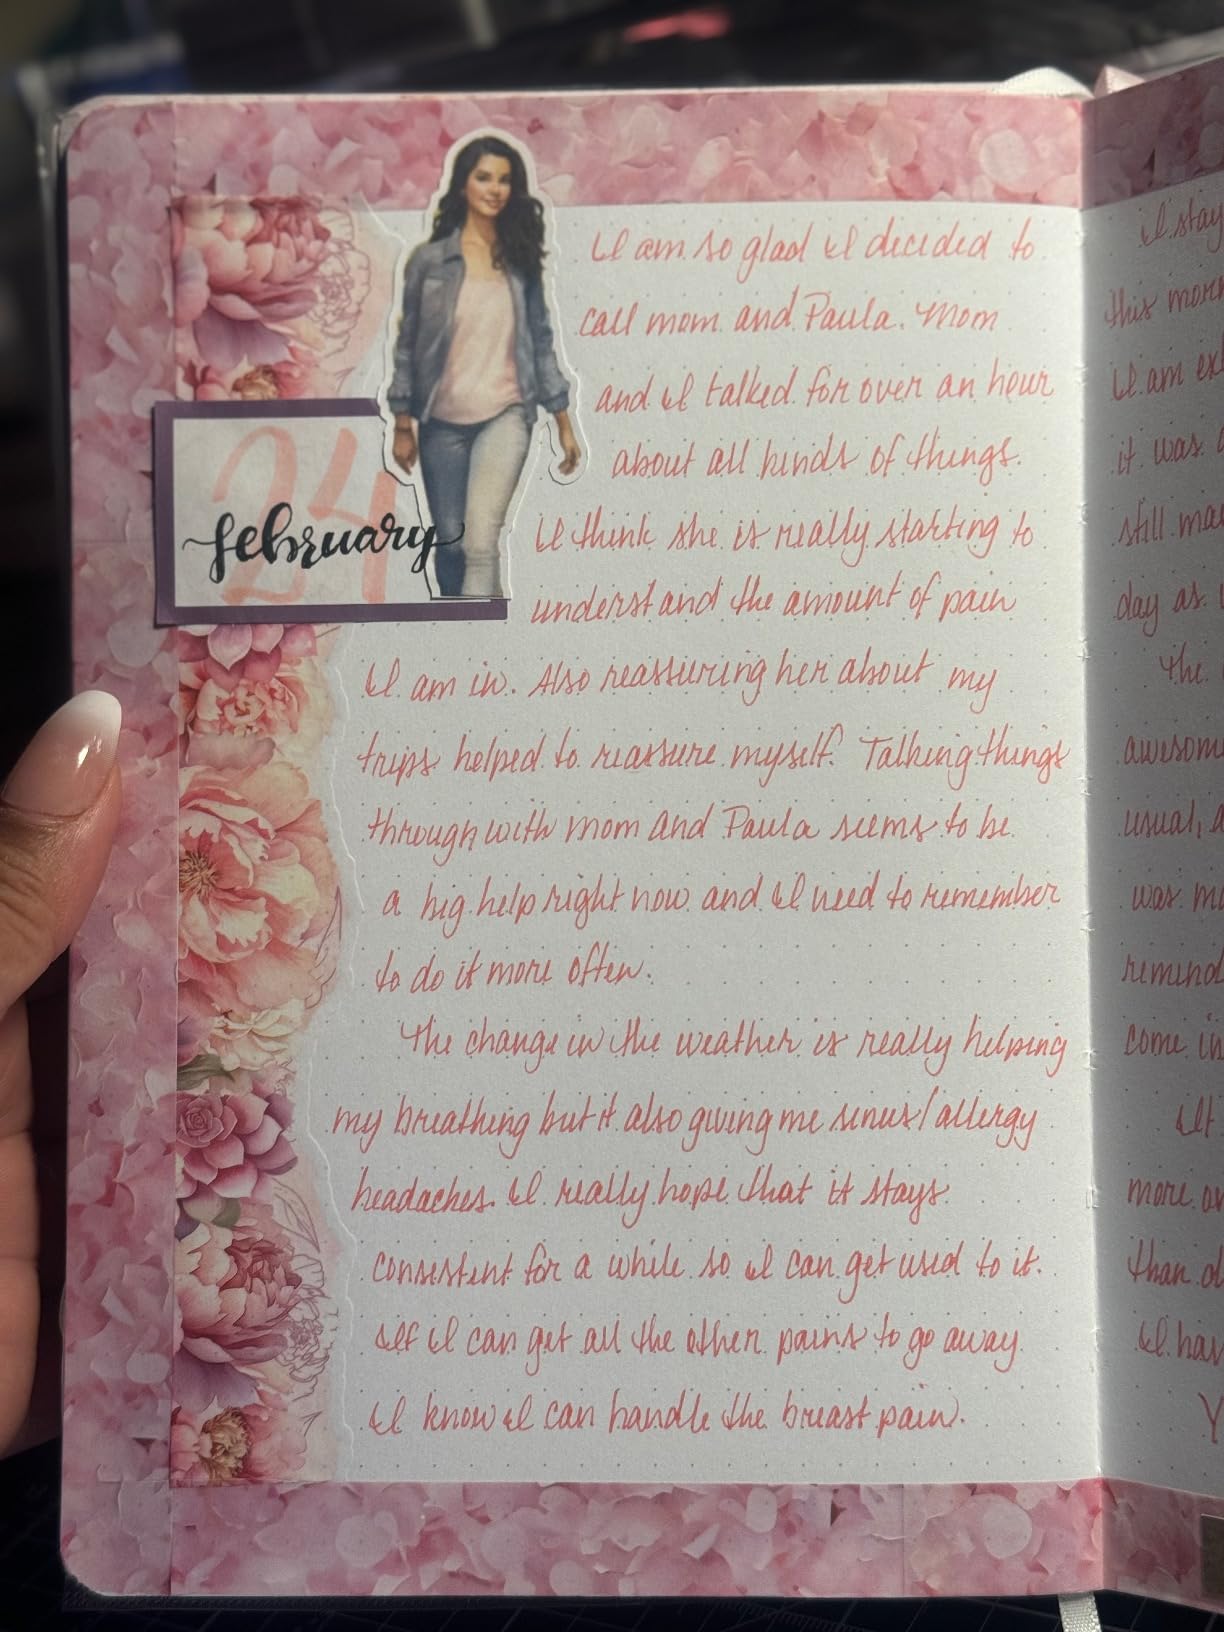 24
february
I am so glad I decided to
call mom and Paula. Mom
and I talked for over an hour
about all kinds of things.
I think she is really starting to
understand the amount of pain
I am in. Also reassuring her about my
trips helped to reassure myself. Talking things
through with mom and Paula seems to be
a big help right now and I need to remember
to do it more often.
The change in the weather is really helping
my breathing but it also giving me sinus/allergy
headaches. I really hope that it stays
consistent for a while so I can get used to it.
If I can get all the other pains to go away
I know I can handle the breast pain.
I stay
this morn
I am ex
it was
still ma
day as
The
awesom
usual, a
was m
remind
come in
It
more o
than d
I hav
Y